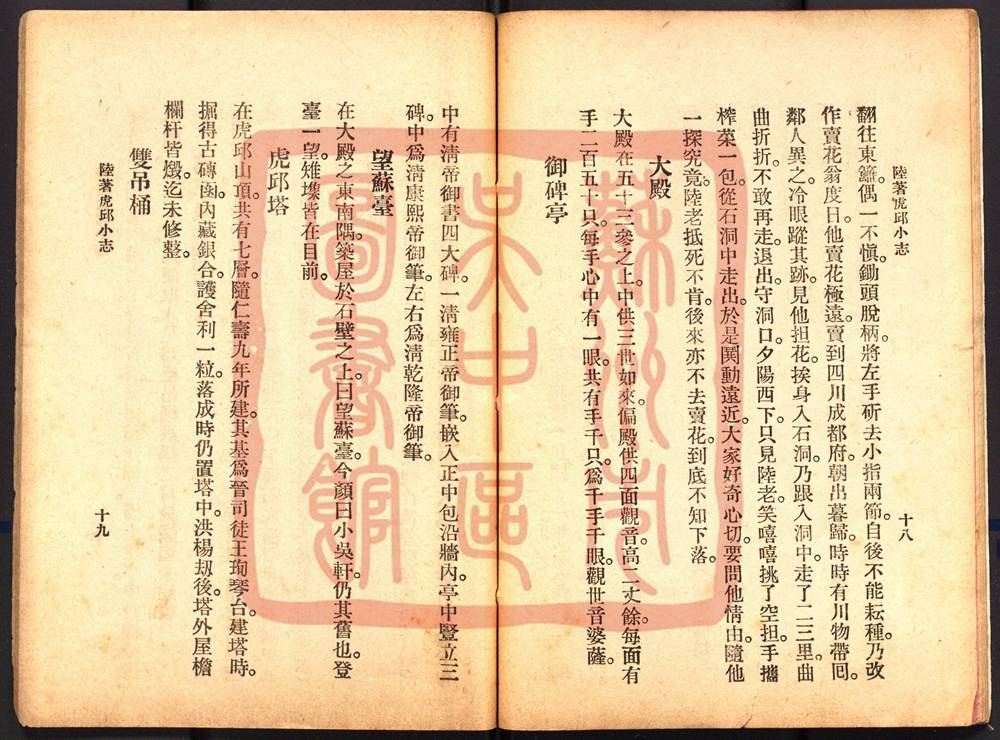 陸著虎邱小志
十八
翻往東籬偶一不愼。鋤頭脫柄。將左手斫去小指兩節。自後不能耘種。乃改
作賣花翁度日。他賣花極遠。賣到四川成都府。朝出暮歸。時時有川物帶囘。
鄰人異之。冷眼蹤其跡。見他担花。挨身入石洞。乃跟入洞中。走了二三里。曲
曲折折。不敢再走。退出。守洞口。夕陽西下。只見陸老。笑嘻嘻挑了空担。手攜
榨菜一包。從石洞中走出。於是鬨動遠近。大家好奇心切。要問他情由。隨他
一探究竟。陸老抵死不肯。後來亦不去賣花。到底不知下落。
大殿
大殿在五十三參之上。中供三世如來。偏殿供四面觀音。高二丈餘。每面有
手二百五十只。每手心中有一眼。共有手千只。爲千手千眼。觀世音婆薩。
御碑亭
中有清帝御書四大碑。一清雍正帝御筆。嵌入正中包沿牆內。亭中豎立三
碑。中爲清康熙帝御筆。左右爲清乾隆帝御筆。
望蘇臺
在大殿之東南隅。築屋於石壁之上。曰望蘇臺。今顏曰小吳軒。仍其舊也。登
臺一望。雉堞皆在目前。
虎邱塔
在虎邱山頂。共有七層。隨仁壽九年所建。其基爲晉司徒王珣琴台。建塔時。
掘得古磚函。內藏銀合。護舍利一粒。落成時仍置塔中。洪楊刼後。塔外屋檐
欄杆皆燬。迄未修整。
雙吊桶
陸著虎邱小志
十九
蘇州市吳中區圖書館